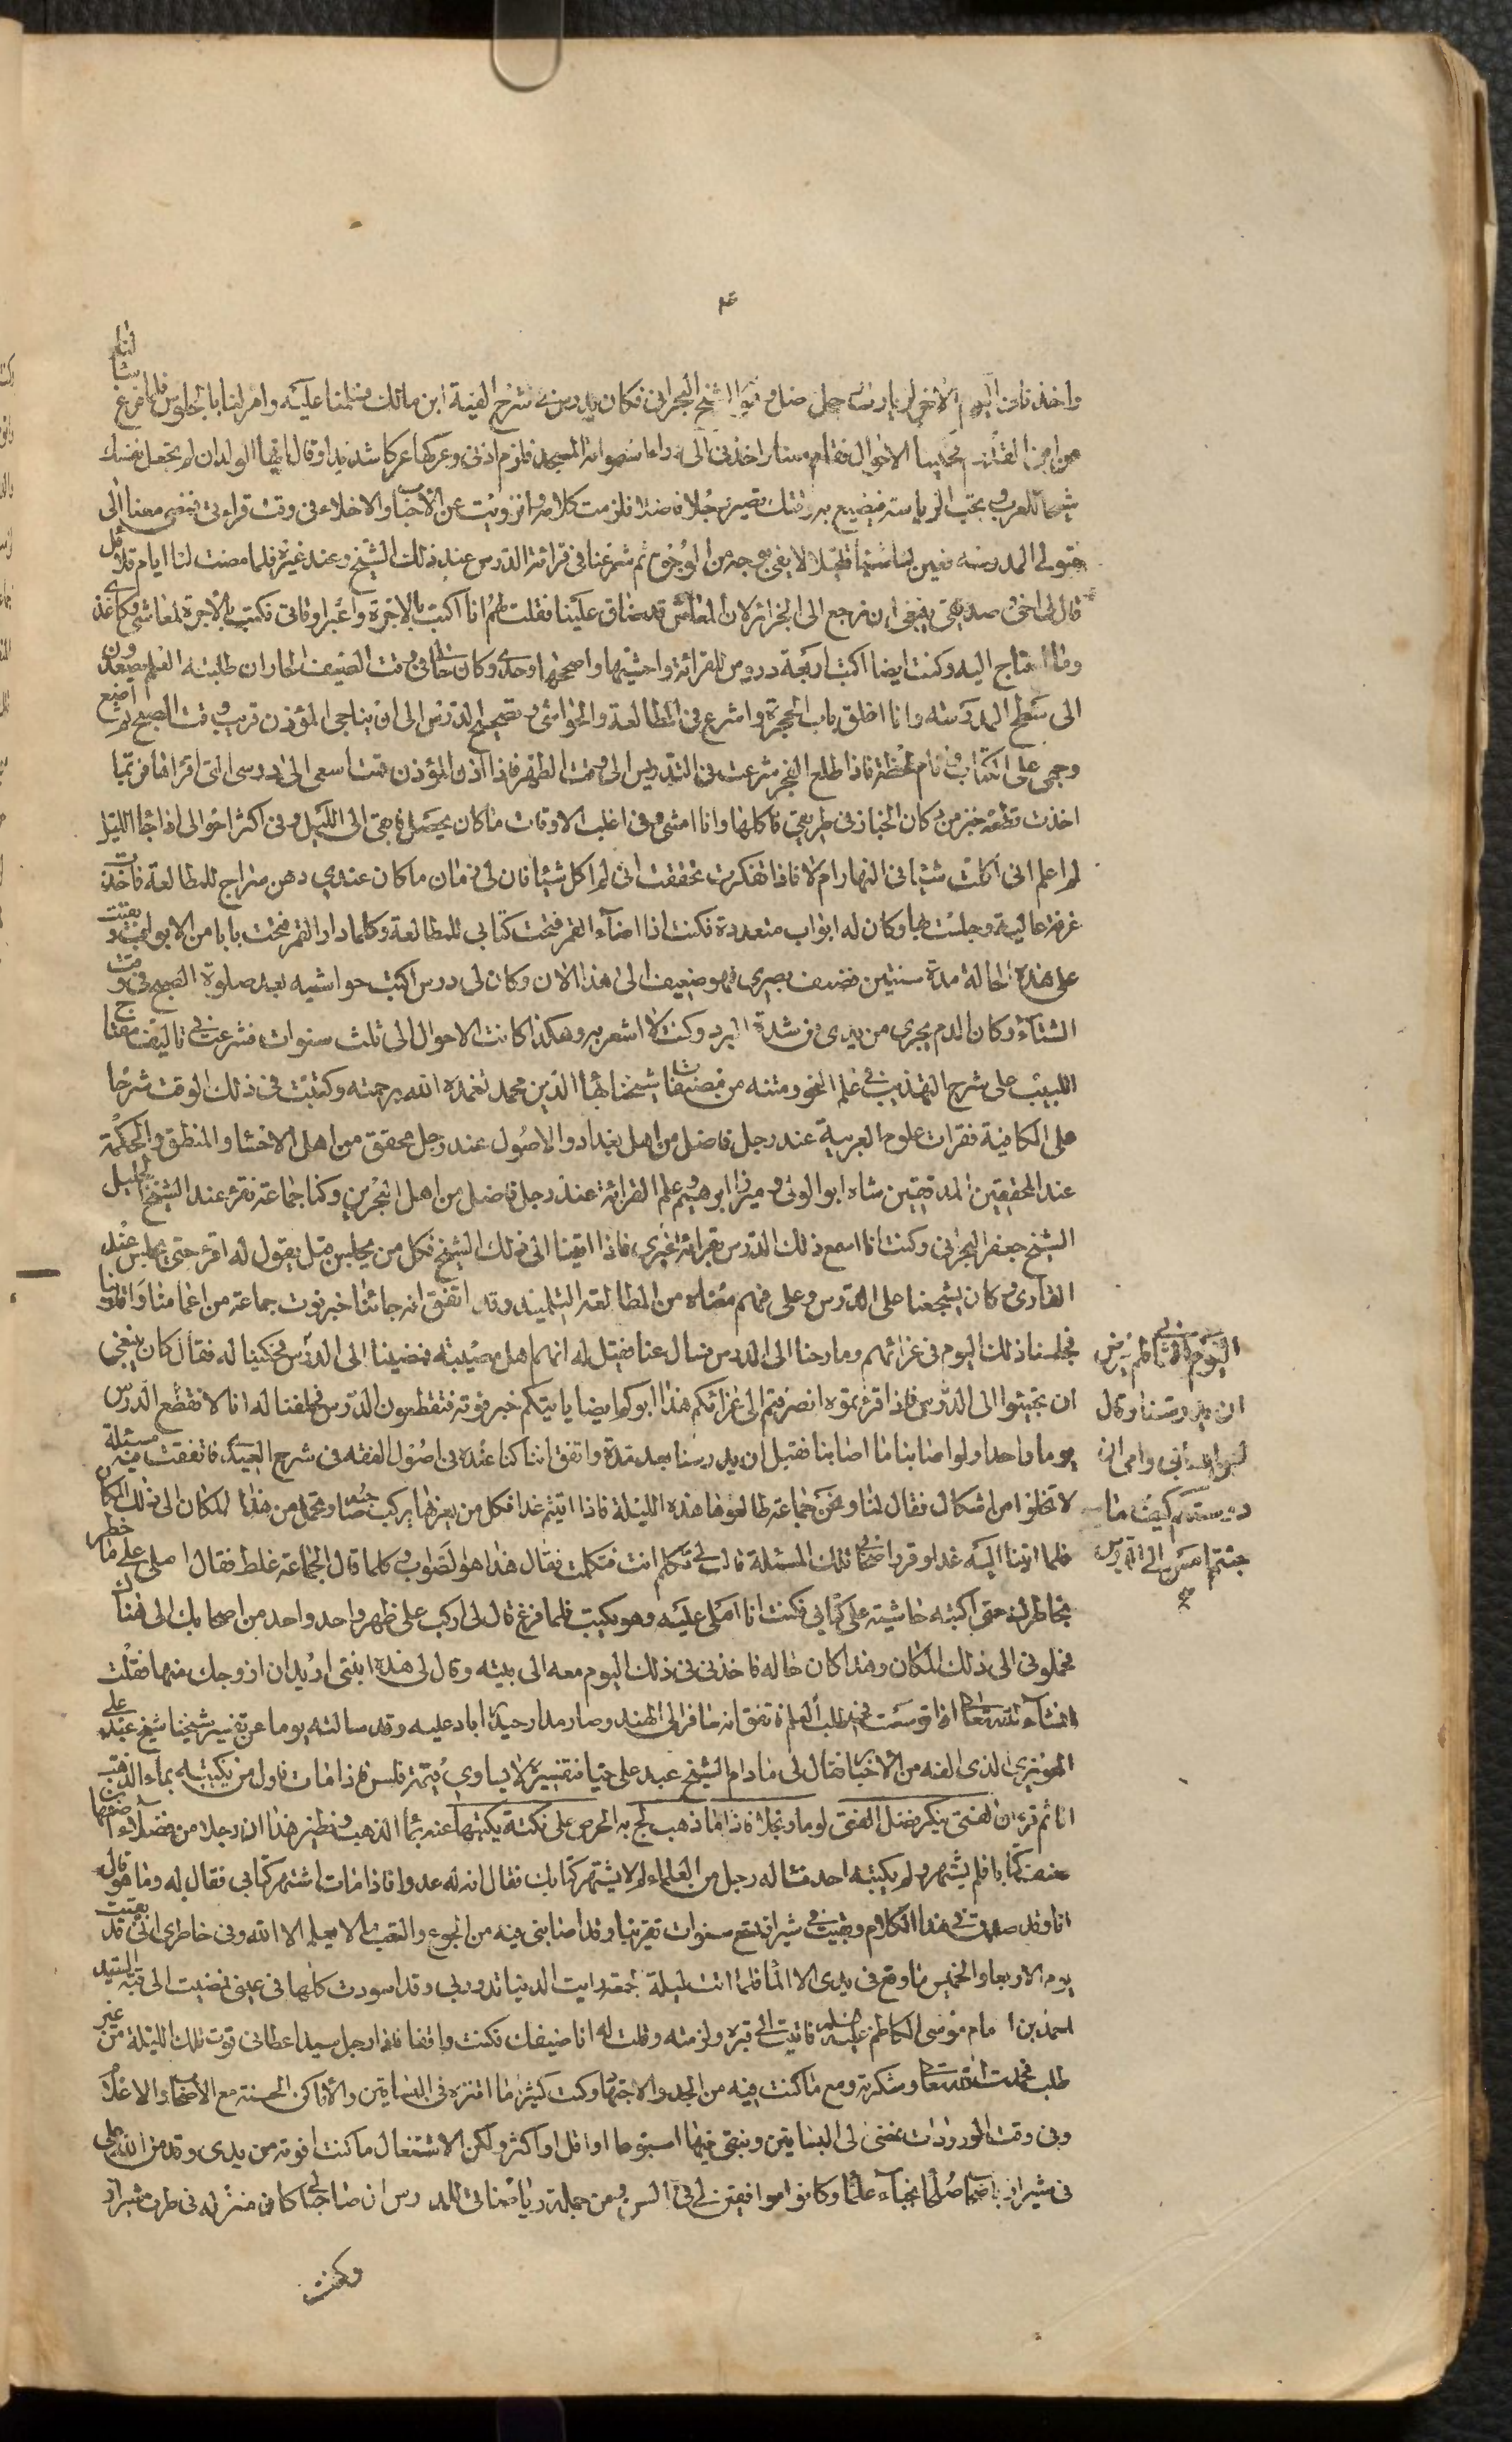 واخذنا في اليوم الآخر لزيارة رجل فاضل وهو الشيخ البحراني فكان يدرس في شرح الفية ابن مالك فسلمنا عليه وامر لنا بالجلوس فلما فرغ سالنا
من اين القدوم فحكينا الاحوال فقام معنا واخذني الى وراء اسطوانة المسجد فلزم اذني وعركها عركا شديدا وقال ايها الولد ان لم تجعل نفسك
شيخا للعرب ولم تحب الرياسة فيضيع به وقتك تصير رجلا فاضلا فلزمت كلامه وانزويت عن الاحباب والاخلاء في وقت قراءتي فمضى معنا الى
متولي المدرسة فعين لنا شيئا قليلا لا يفي بوجه من الوجوه ثم شرعنا في قرائة الدرس عند ذلك الشيخ وعند غيره فلما مضت لنا ايام قلائل
قال لي اخي وصديقي ينبغي ان نرجع الى الجزائر لان المعاش قد ضاق علينا فقلت لهم انا اكتب بالاجرة واعبر اوقاتي فكنت اكتب بالاجرة لمعاشي وكاغذي
وما احتاج اليه وكنت ايضا اكتب اربعة دروس للقرائة واحشيها واصححها وحدي وكان حالي في وقت الصيف الحار ان طلبة العلم يصعدون
الى سطح المدرسة وانا اغلق باب الحجرة واشرع في المطالعة والحواشي وتصحيح الدرس الى ان يناجي المؤذن قريب وقت الصبح ثم اضع
وجهي على الكتاب وانام لحظة فاذا طلع الفجر شرعت في التدريس الى وقت الظهر فاذا اذن المؤذن قمت اسعى الى درسي التي اقراها فربما
اخذت قطعة خبز من دكان الخباز في طريقي فاكلها وانا امشي وفي اغلب الاوقات ما كان يحصل فابقى الى الليل وفي اكثر احوالي اذا جاء الليل
لم اعلم اني اكلت شيئا في النهار ام لا فاذا تفكرت تحققت اني لم اكل شيئا فان لي زمان ما كان عندي دهن سراج للمطالعة فاخذت
غرفة عالية وجلست بها وكان له ابواب متعددة فكنت اذا اضاء القمر فتحت كتابي للمطالعة وكلما دار القمر فتحت بابا من الابواب وبقيت
على هذه الحالة مدة سنتين فضعف بصري فهو ضعيف الى هذا الان وكان لي درس اكتب حواشيه بعد صلوة الصبح في وقت
الشتاء وكان الدم يجري من يدي من شدة البرد وكنت لا اشعر به وهكذا كانت الاحوال الى ثلث سنوات فشرعت في تاليف مفتاح
اللبيب على شرح التهذيب في علم النحو ومتنه من مصنفات شيخنا بهاء الدين محمد تغمده الله برحمته وكتبت في ذلك الوقت شرحا
على الكافية فقرات علوم العربية عند رجل فاضل من اهل بغداد والاصول عند رجل محقق من اهل الاحساء والمنطق والحكمة
عند المحققين المدققين شاه ابو الولي وميرزا ابرهيم وعلم القرائة عند رجل فاضل من اهل البحرين وكنا جماعة نقرء عند الشيخ الجليل
الشيخ جعفر البحراني وكنت انا اسمع ذلك الدرس بقرائة غيري فاذا اتينا الى ذلك الشيخ فكل من يجلس قبل يقول له اقرء حتى يجلس عند
القاري وكان يشجعنا على الدرس وعلى فهم معناه من المطالعة للتلميذ وقد اتفق انه جائنا خبر فوت جماعة من اعمامنا واقاربنا
فجلسنا ذلك اليوم في عزائهم وما رحنا الى الدرس فسال عنا فقيل له انهم اهل مصيبة فمضينا الى الدرس في اليوم الاخر فلم يرض ان يدرسنا وقال لعن الله ابي وامي ان درستكم كيف ما جئتم امس الى الدرس فحكينا له فقال كان ينبغي
ان تجيئوا الى الدرس فاذا قرءتموه انصرفتم الى عزائكم هذا ابوكم ايضا ياتيكم خبر فوته فتقطعون الدرس فحلفنا له انا لا نقطع الدرس
يوما واحدا ولو اصابنا ما اصابنا فقبل ان يدرسنا بعد مدة واتفق اننا كنا عنده في اصول الفقه في شرح العميدي فاتفقت فيه مسئلة
لا تخلو من اشكال فقال لنا ونحن جماعة طالعوها هذه الليلة فاذا اتيتم غدا فكل من يعرفها يركب صاحبه ويحمل من هذا المكان الى ذلك المكان
فلما اتينا اليه غدا وقرر اصحابي تلك المسئلة قال لي تكلم انت فتكلمت فقال هذا هو الصواب وكلما قال الجماعة غلط فقال املي علي ما خطر
بخاطرك حتى اكتبه حاشية على كتابي فكنت انا املي عليه وهو يكتب فلما فرغ قال لي اركب على ظهر واحد واحد من اصحابك الى هناك
فحملوني الى ذلك المكان وهذا كان حاله فاخذني في ذلك اليوم معه الى بيته وقال لي هذه ابنتي اريد ان ازوجك منها فقلت
انشاء الله تعالى اذا توسعت في طلب العلم فاتفق انه سافر الى الهند وصار مدار حيدراباد عليه وقد سالته يوما عن تفسير شيخنا شيخ عبد علي
الحويزي الذي الفه من الاخبار فقال لي ما دام الشيخ عبد علي حيا فتفسيره لا يساوي قيمة فلس فاذا مات فاول من يكتبه بماء الذهب
انا ثم قرء ترى الفتى ينكر فضل الفتى لوما وبخلا فاذا ما ذهب لج به الحرص على نكتة يكتبها عنه بماء الذهب ونظير هذا ان رجلا من فضلاء اصفهان
صنف كتابا فلم يشتهر ولم يكتبه احد فساله رجل من العلماء لم لا يشتهر كتابك فقال انه له عدوا فاذا مات اشتهر كتابي فقال له وما هو قال
انا وقد صدق في هذا الكلام وبقيت في شيراز تسع سنوات تقريبا وقد اصابني فيه من الجوع والتعب ما لا يعلم الا الله وفي خاطري اني قد بقيت
يوم الاربعا والخميس ما وقع في يدي الا الماء فلما اتت ليلة الجمعة رايت الدنيا تدور بي وقد اسودت كلها في عيني فمضيت الى قبة السيد
احمد بن الامام موسى الكاظم عليه السلام فاتيت الى قبره ولزمته وقلت له انا ضيفك فكنت واقفا فاذا رجل سيد اعطاني قوت تلك الليلة من غير
طلب فحمدت الله تعالى وشكرته ومع ما كنت فيه من الجد والاجتهاد وكنت كثيرا ما اتنزه في البساتين والاماكن الحسنة مع الاصحاب والاعلاء
وفي وقت الورد وردات نمضي الى البساتين ونبقى فيها اسبوعا او اقل او اكثر ولكن الاشتغال ما كنت افوته من يدي وقد من الله علي
في شيراز باصحاب صلحاء نجباء علماء وكانوا موافقين لي في السن ومن جملة رياضاتي للدرس ان صاحبا لي كان منزله في طرف شيراز
وكنت